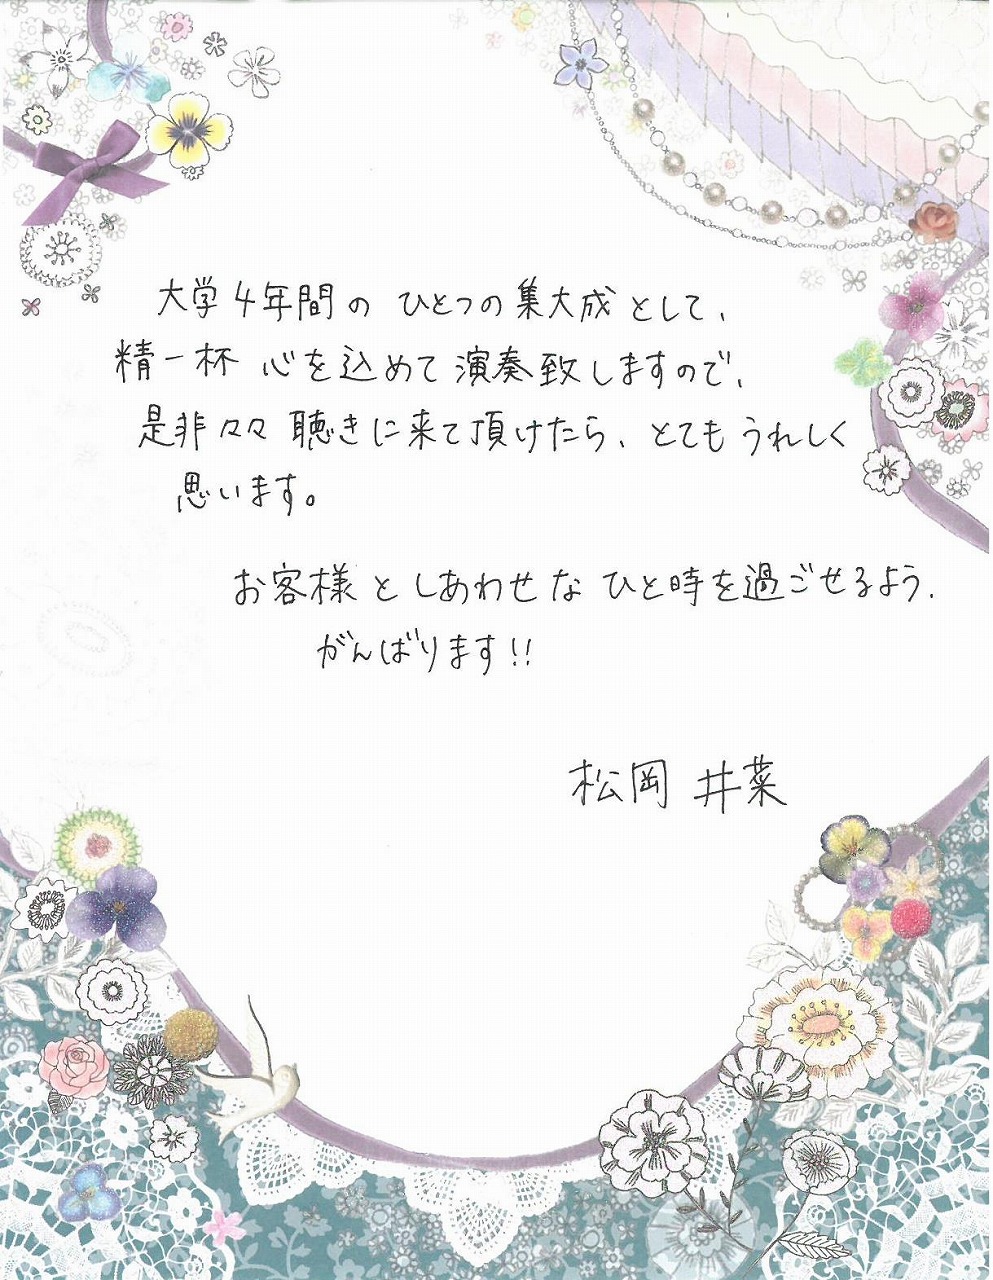 大学4年間の ひとつの集大成として、
精一杯 心を込めて演奏致しますので、
是非々々 聴きに来て頂けたら、とてもうれしく
思います。
お客様としあわせな ひと時を過ごせるよう、
がんばります!!
松岡 井菜